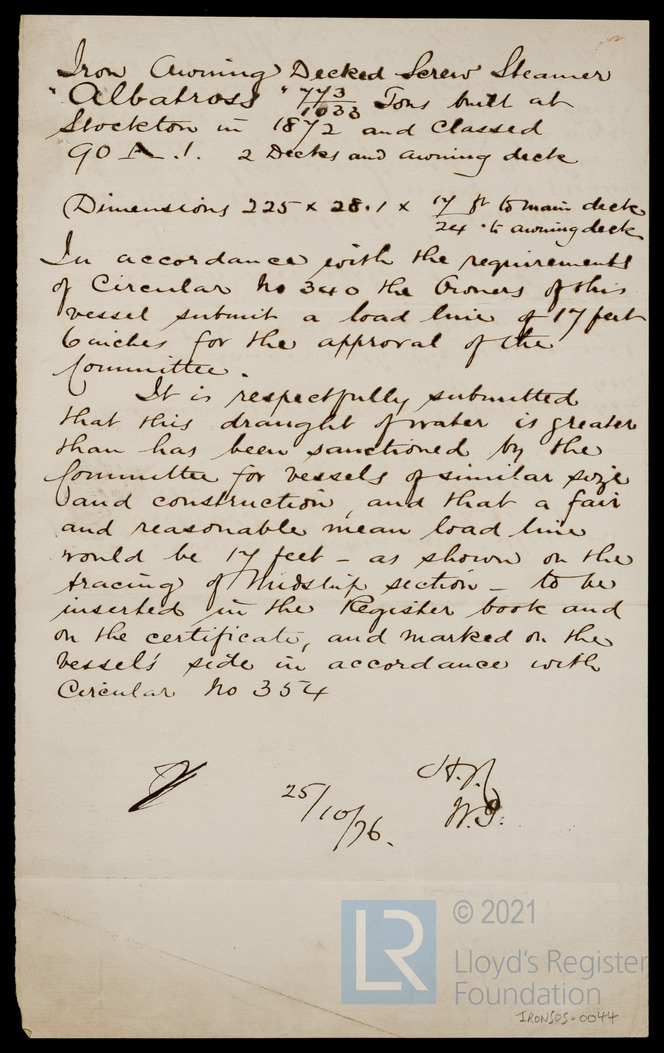 Iron Awning Decked Screw Steamer
"Albatross" 773/1033 Tons built at
Stockton in 1872 and Classed
90 A.1. 2 Decks and awning deck
Dimensions 225 x 28.1 x 17 ft to main deck
24 " to awning deck
In accordance with the requirements
of Circular No 340 the Owners of this
vessel submit a load line of 17 feet
6 inches for the approval of the
Committee.
It is respectfully submitted
that this draught of water is greater
than has been sanctioned by the
Committee for vessels of similar size
and construction, and that a fair
and reasonable mean load line
would be 17 feet – as shown on the
tracing of Midship section – to be
inserted in the Register book and
on the certificate, and marked on the
vessel's side in accordance with
Circular No 354
25/10/76.
© 2021
LR
Lloyd's Register
Foundation
IRONSOS-0044